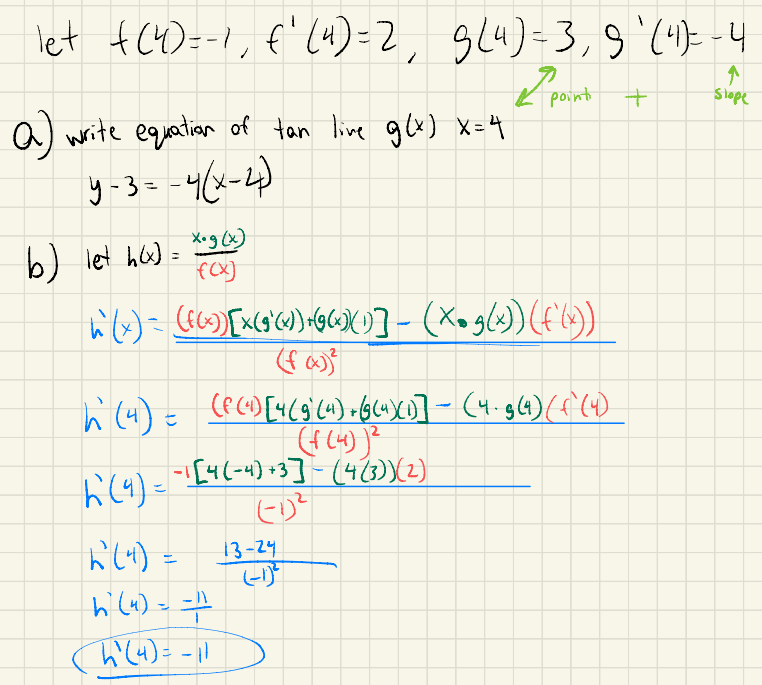 let f(4)=-1, f'(4)=2, g(4)=3, g'(4)=-4
point + slope
a) write equation of tan line g(x) x=4
y-3=-4(x-4)
b) let h(x) = x•g(x)/f(x)
h'(x) = (f(x))[x(g'(x))+(g(x)(1)] - (x•g(x))(f'(x))
(f(x))²
h'(4) = (f(4)[4(g'(4)+(g(4)(1)] - (4·g(4)(f'(4)
(f(4))²
h'(4) = -1[4(-4)+3] - (4(3))(2)
(-1)²
h'(4) = 13-24
(-1)²
h'(4) = -11/1
h'(4) = -11